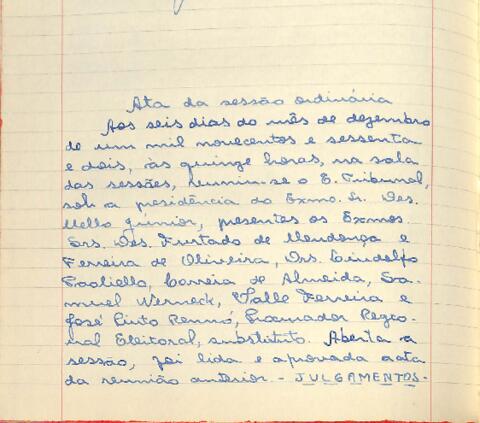 Ata da sessão ordinária
Aos seis dias do mês de dezembro
de um mil novecentos e sessenta
e dois, às quinze horas, na sala
das sessões, reuniu-se o E. Tribunal,
sob a presidência do Exmo. Sr. Des.
Mello Júnior, presentes os Exmos.
Srs. Des. Furtado de Mendonça e
Ferreira de Oliveira, Drs. Lindolfo
Paoliello, Correia de Almeida, Sa-
muel Werneck, Valle Ferreira e
José Pinto Rennó, Procurador Regio-
nal Eleitoral, substituto. Aberta a
sessão, foi lida e aprovada a ata
da reunião anterior. - JULGAMENTOS -